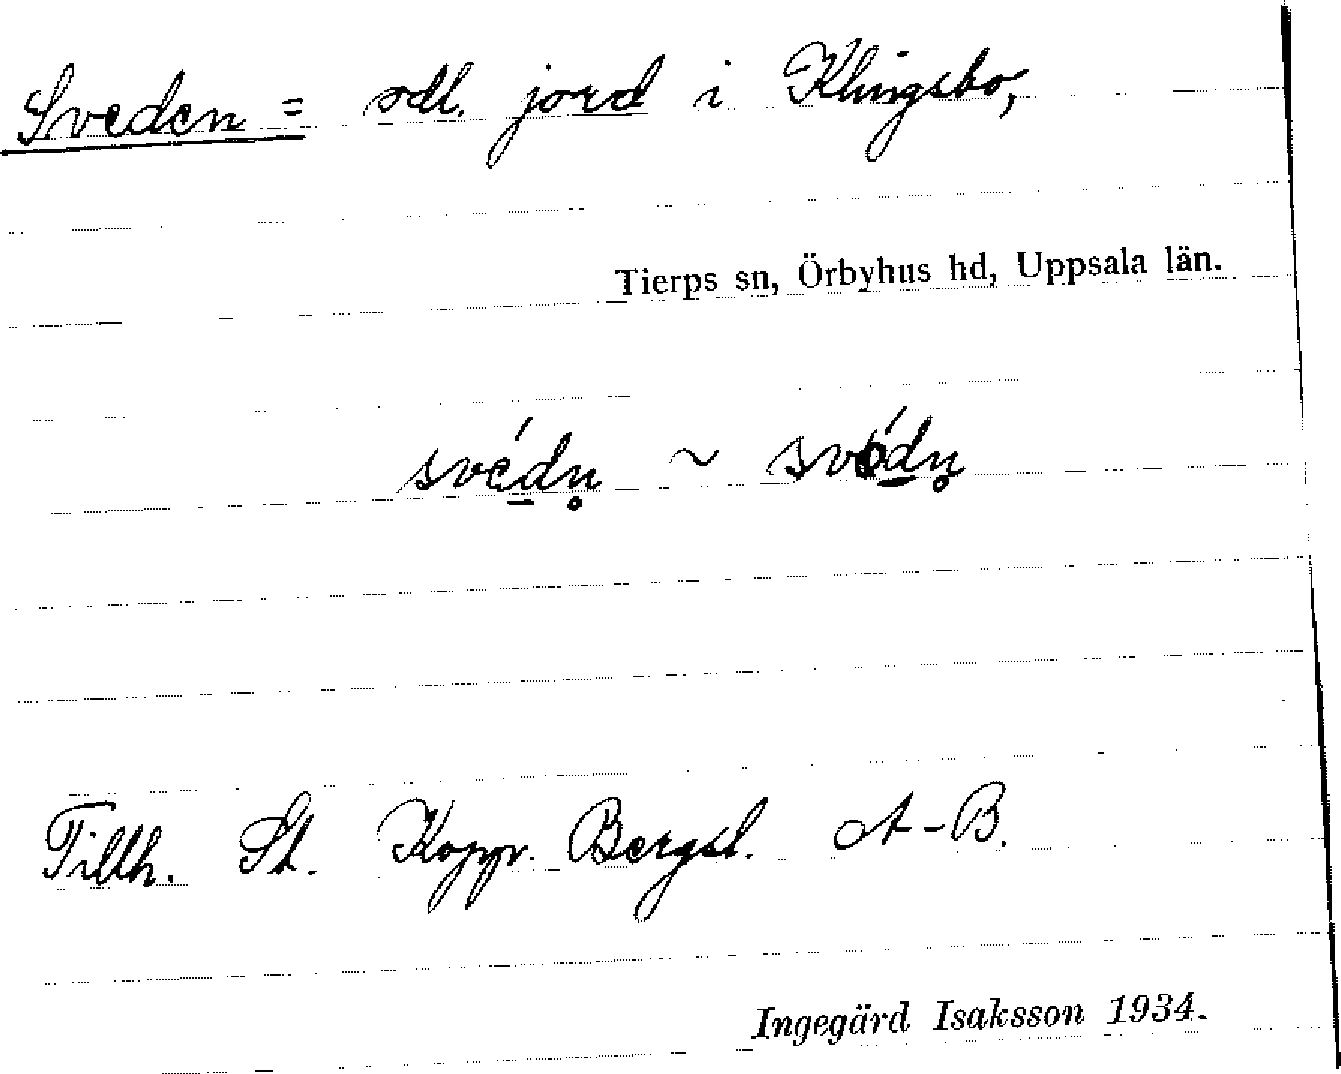 Sveden = odl. jord i Klingsbo,
Tierps sn, Örbyhus hd, Uppsala län.
své̱dn̥ ~ své̱dn̥
Tillh. St. Koppr. Bergsl. A-B.
Ingegärd Isaksson 1934.